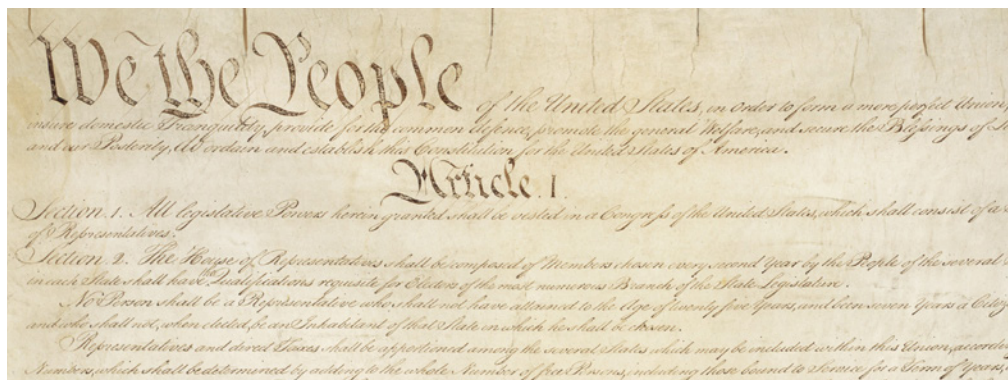 We the People of the United States, in Order to form a more perfect Union
insure domestic Tranquility, provide for the common defence, promote the general Welfare, and secure the Blessings of
and our Posterity, do ordain and establish this Constitution for the United States of America.
Article. I.
Section. 1. All legislative Powers herein granted shall be vested in a Congress of the United States, which shall consist of a
of Representatives.
Section. 2. The House of Representatives shall be composed of Members chosen every second Year by the People of the several
in each State shall have the Qualifications requisite for Electors of the most numerous Branch of the State Legislature.
No Person shall be a Representative who shall not have attained to the Age of twenty five Years, and been seven Years a
and who shall not, when elected, be an Inhabitant of that State in which he shall be chosen.
Representatives and direct Taxes shall be apportioned among the several States which may be included within this Union, according
Numbers, which shall be determined by adding to the whole Number of free Persons, including those bound to Service for a Term of Years,